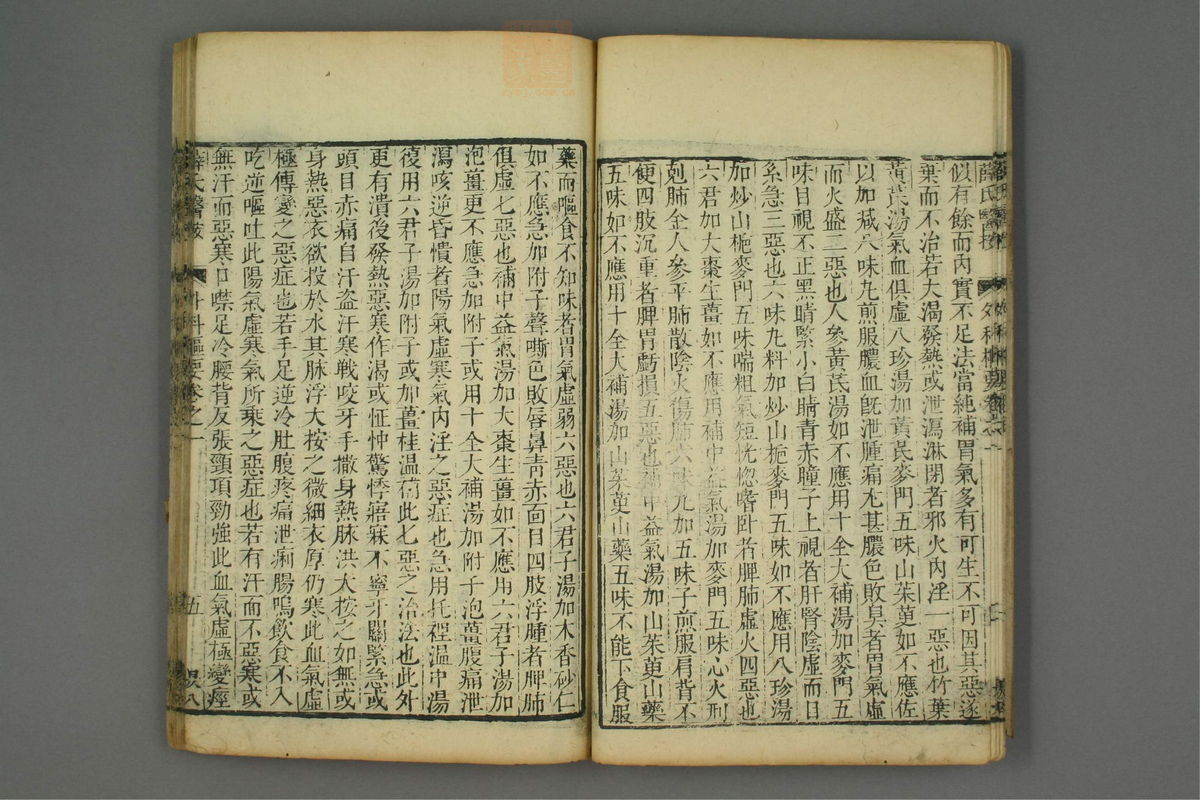 似有餘而內實不足法當純補胃氣多有可生不可因其惡遂
棄而不治若大渴發熱或泄瀉淋閉者邪火內淫一惡也竹葉
黃芪湯氣血俱虛八珍湯加黃芪麥門五味山茱萸如不應佐
以加减八味丸煎服膿血既泄腫痛尤甚膿色敗臭者胃氣虛
而火盛二惡也人參黃芪湯如不應用十全大補湯加麥門五
味目視不正黑睛緊小白睛青赤瞳子上視者肝腎陰虛而目
系急三惡也六味丸料加炒山梔麥門五味如不應用八珍湯
加炒山梔麥門五味喘粗氣短恍惚嗜卧者脾肺虛火四惡也
六君加大棗生薑如不應用補中益氣湯加麥門五味心火刑
剋肺金人參平肺散陰火傷肺六味丸加五味子煎服肩背不
便四肢沉重者脾胃虧損五惡也補中益氣湯加山茱萸山藥
五味如不應用十全大補湯加山茱萸山藥五味不能下食服
藥而嘔食不知味者胃氣虛弱六惡也六君子湯加木香砂仁
如不應急加附子聲嘶色敗唇鼻靑赤面目四肢浮腫者脾肺
俱虛七惡也補中益氣湯加大棗生薑如不應用六君子湯加
泡薑更不應急加附子或用十全大補湯加附子泡薑腹痛泄
瀉咳逆昏憒者陽氣虛寒氣內淫之惡症也急用托裡温中湯
復用六君子湯加附子或加薑桂温補此七惡之治法也此外
更有潰後發熱惡寒作渴或怔忡驚悸寤寐不寧牙關緊急或
頭目赤痛自汗盗汗寒戦咬牙手撒身熱脉洪大按之如無或
身熱惡衣欲投於水其脉浮大按之微細衣厚仍寒此血氣虛
極傳變之惡症也若手足逆冷肚腹疼痛泄痢腸鳴飲食不入
吃逆嘔吐此陽氣虛寒氣所乘之惡症也若有汗而不惡寒或
無汗而惡寒口噤足冷腰背反張頸項勁強此血氣虛極變痙
薛氏醫按 外科樞要卷之一 五